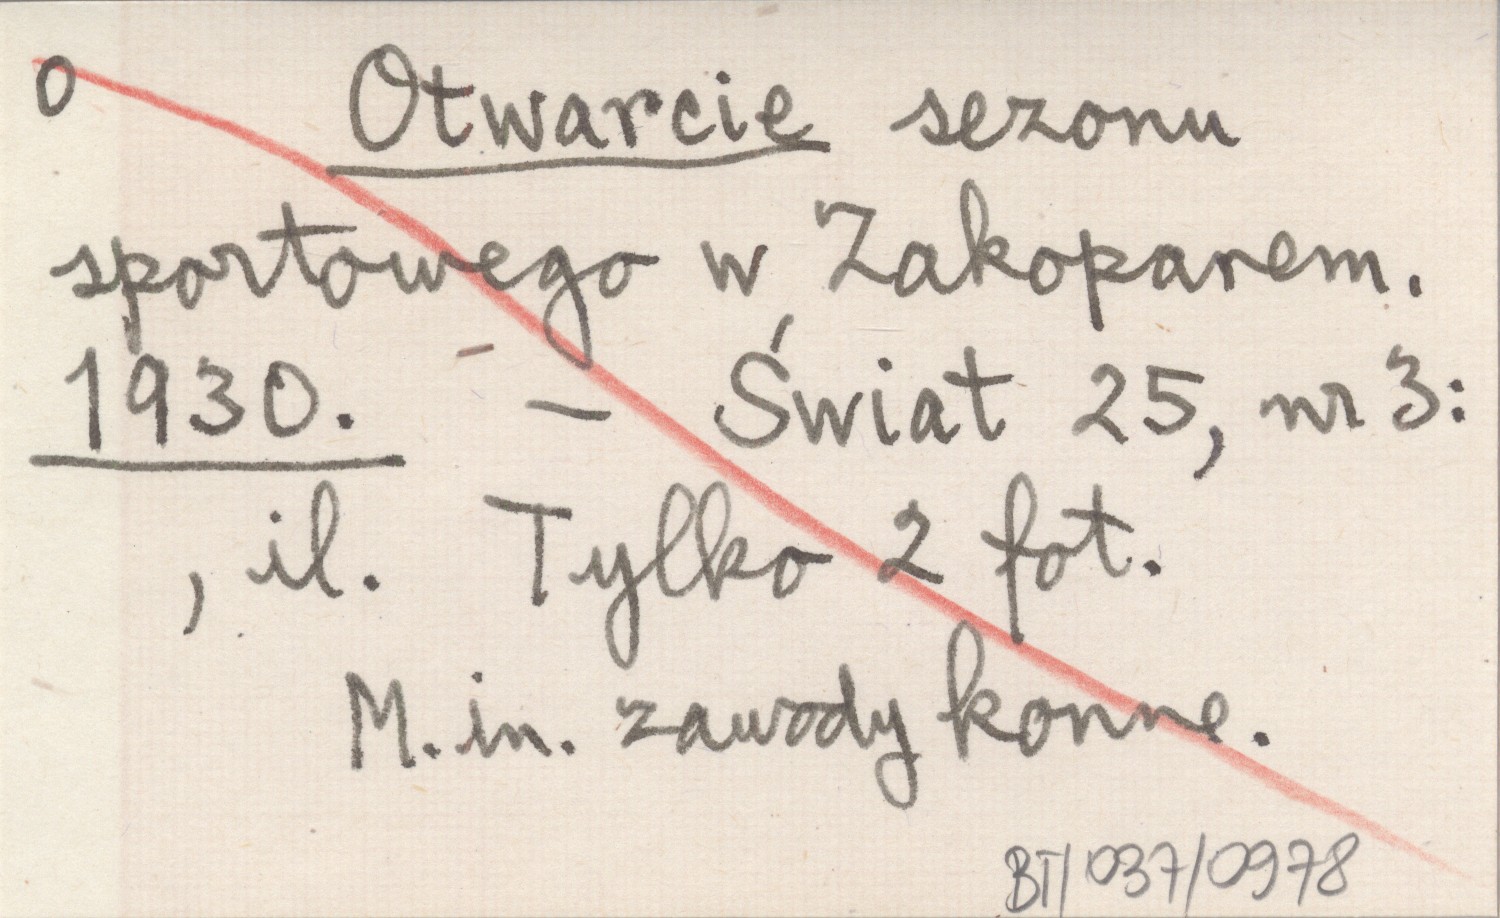 0 Otwarcie sezonu
sportowego w Zakopanem.
1930. – Świat 25, nr 3:
, il. Tylko 2 fot.
M.in. zawody konne.
BT/037/0978